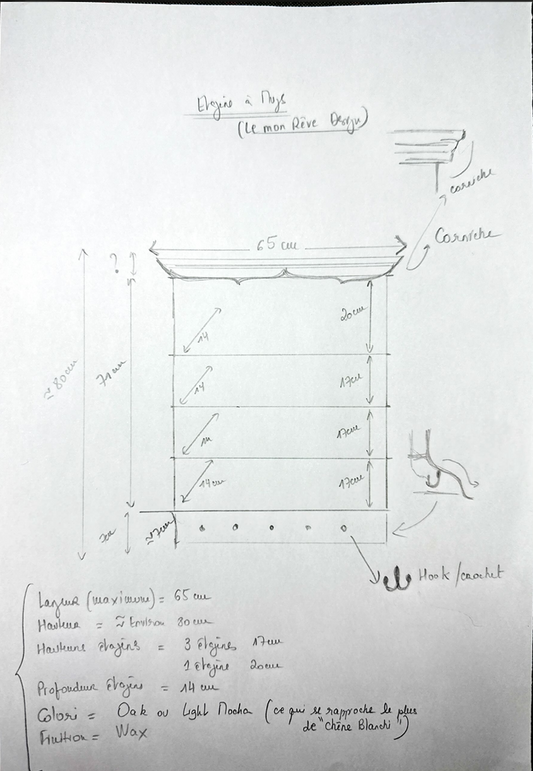 Etagère à Mugs
(Le mon Rêve Design)
corniche
65 cm
Corniche
?
20cm
14
≈ 80cm
71cm
14
17cm
14
17cm
14cm
17cm
≈7cm
Hook/crochet
Largeur (maximum) = 65 cm
Hauteur = ≈ Environ 80cm
Hauteurs étagères = 3 étagères 17cm
1 étagère 20cm
Profondeur étagère = 14 cm
Colori = Oak ou Light Mocha (ce qui se rapproche le plus
de "chêne Blanchi")
Finition = Wax